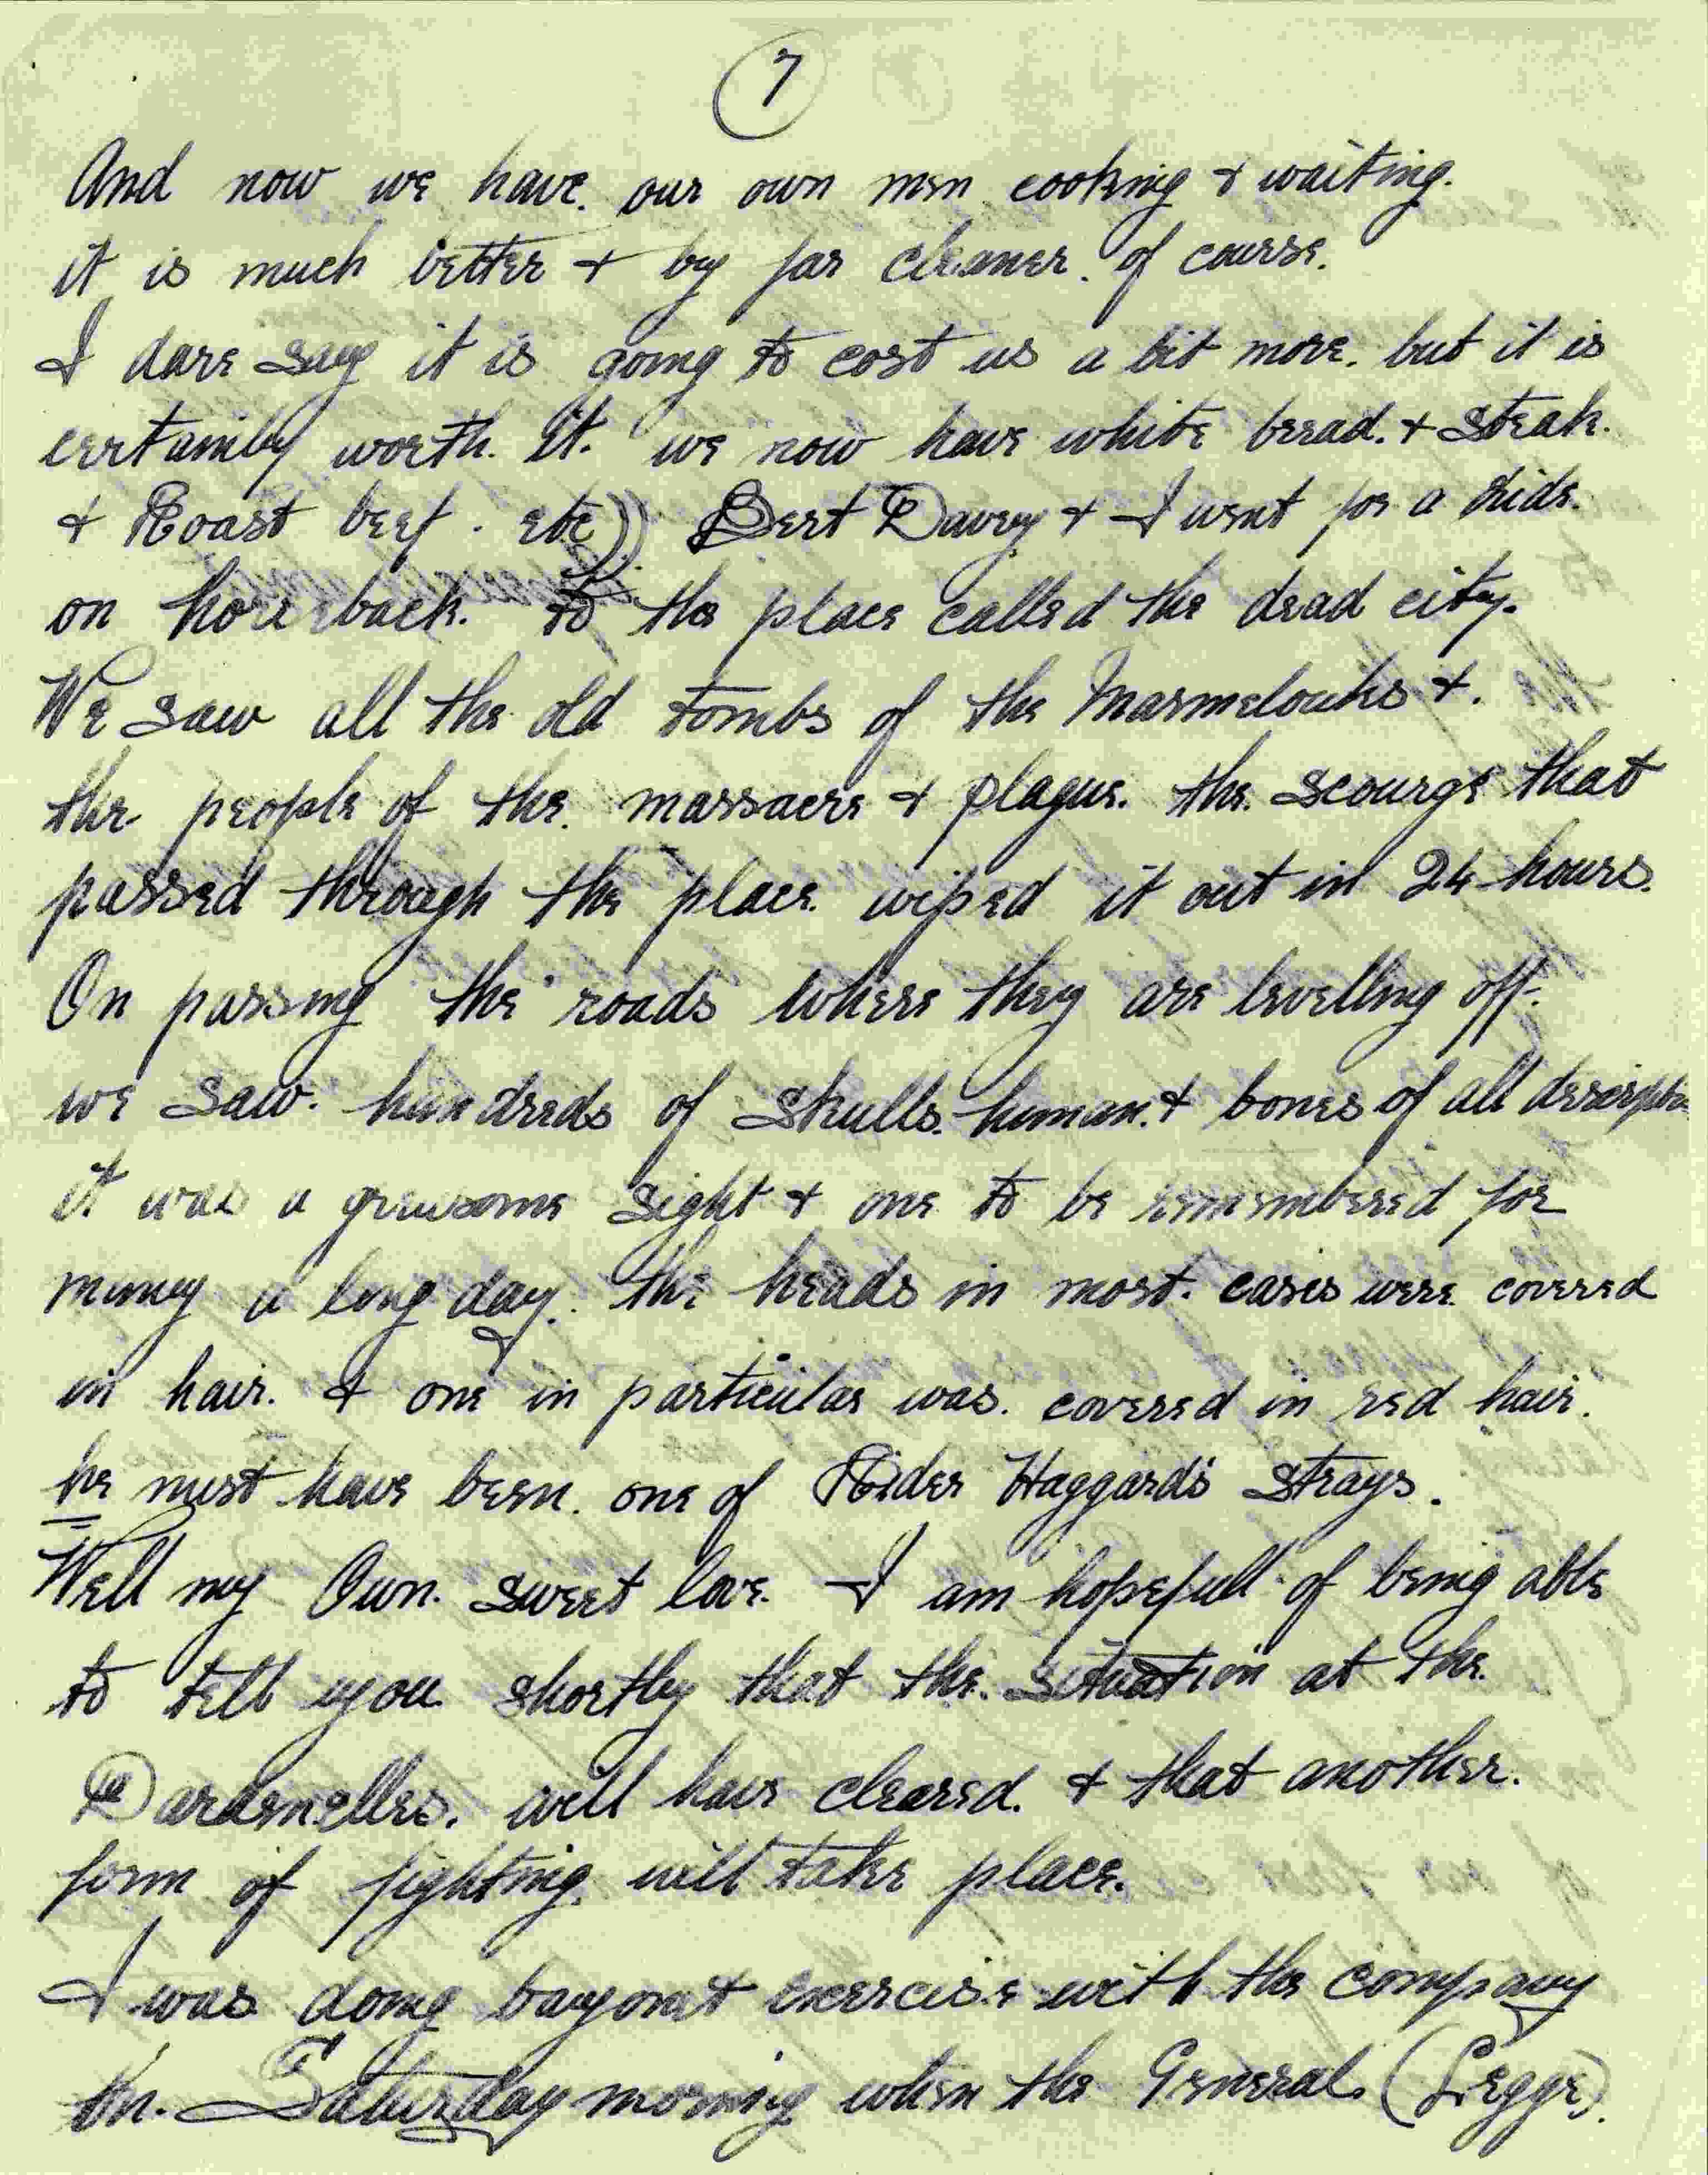 7
And now we have. our own men cooking & waiting.
it is much better & by far cleaner. of course.
I dare say it is going to cost us a bit more. but it is
certainly worth. it. we now have white bread. & Steak.
& Roast beef. etc)) Bert Davey & I went for a ride.
on horseback. to the place called the dead city.
We saw all the old tombs of the Marmelouks &.
the people of the. massacre & plague. the. scourge that
passed through the place. wiped it out in 24 hours.
On passing the roads where they are levelling off.
we saw. hundreds of skulls. human. & bones of all
it was a gruesome sight & one to be remembered for
manny a long day. the heads in most. cases were. covered
in hair. & one in particular was. covered in red hair.
he must have been. one of Rider Haggards strays.
Well my Own. sweet love. I am hopefull of being able
to tell you shortly that the. situation at the.
Dardenelles. will have cleared. & that another.
form of fighting. will take place.
I was doing bayonet exercise with the company
on. Saturday morning when the General. (Legge).